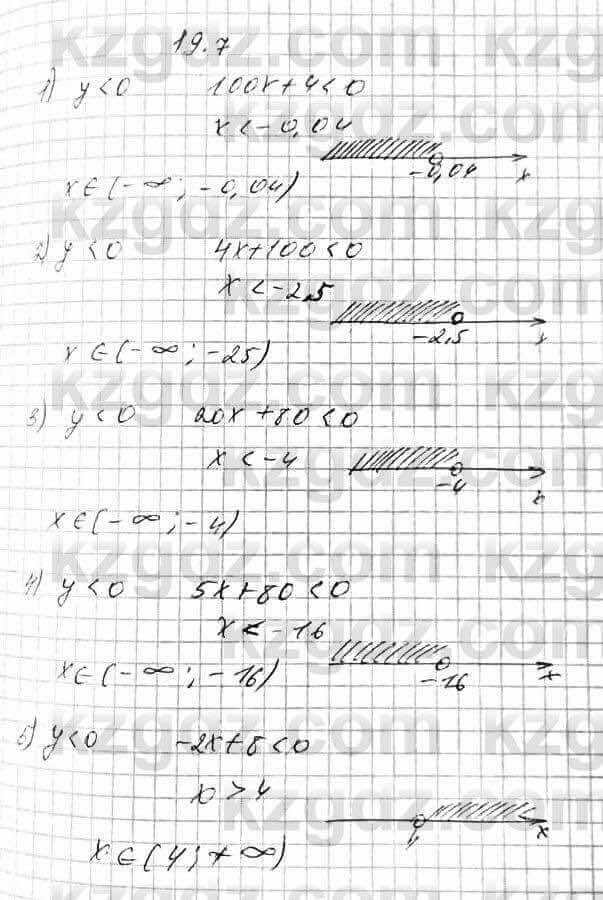 19.7
1) y < 0 100x + 4 < 0
x < -0,04
-0,04 x
x ∈ (-∞; -0,04)
2) y < 0 4x + 100 < 0
x < -2,5
-2,5 x
x ∈ (-∞; -25)
3) y < 0 20x + 80 < 0
x < -4
-4 x
x ∈ (-∞; -4)
4) y < 0 5x + 80 < 0
x < -16
-16 x
x ∈ (-∞; -16)
5) y < 0 -2x + 8 < 0
x > 4
4 x
x ∈ (4; +∞)
kzgdz.com